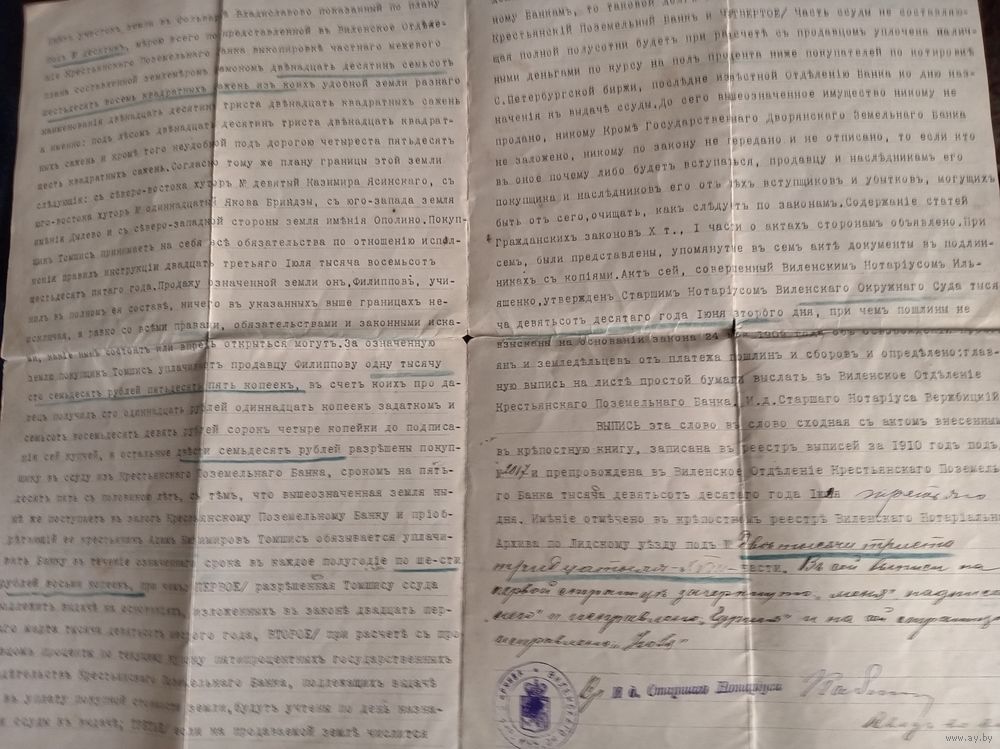 участокъ земли въ фольваркѣ Владиславово показанный по плану
десятинъ, мѣрою всего по представленной въ Виленское Отдѣле-
ніе Крестьянскаго Поземельнаго Банка выкопировкѣ частнаго межевого
плана составленной землемѣромъ двѣнадцать десятинъ семьсотъ
шестьдесятъ восемь квадратныхъ сажень изъ коихъ удобной земли разнаго
наименованія двѣнадцать десятинъ триста двѣнадцать квадратныхъ сажень
а именно: подъ лѣсомъ двѣнадцать десятинъ триста двѣнадцать квадрат-
ныхъ сажень и кромѣ того неудобной подъ дорогою четыреста пятьдесятъ
шесть квадратныхъ сажень.Согласно тому же плану границы этой земли
слѣдующія: съ сѣверо-востока хуторъ № девятый Казимира Ясинскаго, съ
юго-востока хуторъ № одиннадцатый Якова Бриндзы, съ юго-запада земля
имѣнія Дылево и съ сѣверо-западной стороны земля имѣнія Ополино.Покуп-
щикъ Томшисъ принимаетъ на себя всѣ обязательства по отношенію испол-
ненія правилъ инструкціи двадцать третьяго Іюля тысяча восемьсотъ
шестьдесятъ пятаго года.Продажу означенной земли онъ,Филипповъ, учи-
нилъ въ полномъ ея составѣ, ничего въ указанныхъ выше границахъ не-
исключая, а равно со всѣми правами, обязательствами и законными иска-
ми, какіе нынѣ состоятъ или впредь открыться могутъ.За означенную
землю покупщикъ Томшисъ уплачиваетъ продавцу Филиппову одну тысячу
сто семьдесятъ рублей пятьдесятъ пять копеекъ, въ счетъ коихъ про да-
вецъ получилъ сто одиннадцать рублей одиннадцать копеекъ задаткомъ и
семьсотъ восемьдесятъ девять рублей сорокъ четыре копейки до подписа-
нія сей купчей, а остальные двѣсти семьдесятъ рублей разрѣшены покуп-
щику въ ссуду изъ Крестьянскаго Поземельнаго Банка, срокомъ на пять-
десятъ пять съ половиною лѣтъ, съ тѣмъ, что вышеозначенная земля ны-
нѣ же поступаетъ въ залогъ Крестьянскому Поземельному Банку и пріоб-
рѣтающій ее крестьянинъ Адамъ Томшисъ обязывается уплачи-
вать Банку въ теченіе означеннаго срока въ каждое полугодіе по ше-сти
рублей восьми копеекъ, при чемъ ПЕРВОЕ/ разрѣшенная Томшису ссуда
подлежитъ выдачѣ на основаніяхъ, изложенныхъ въ законѣ двадцать пер-
ваго марта тысяча девятьсотъ второго года, ВТОРОЕ/ при расчетѣ съ про-
по текущему курсу пятипроцентныхъ государственныхъ
Крестьянскаго Поземельнаго Банка, подлежащихъ выдачѣ
въ уплату покупной стоимости земли,будутъ учтены по день назна-
ссуды къ выдачѣ; ТРЕТЬЕ/ если на продаваемой землѣ числится
ному Банкамъ, то таковой долгъ
Крестьянскій Поземельный Банкъ и ЧЕТВЕРТОЕ/ Часть ссуды не составляю-
щая полной полусотни будетъ при расчетѣ съ продавцомъ уплочена налич-
ными деньгами по курсу на полъ процента ниже покупателей по котировкѣ
С.Петербургской биржи, послѣдне извѣстной Отдѣленію Банка ко дню наз-
наченія къ выдачѣ ссуды.До сего вышеозначенное имущество никому не
продано, никому Кромѣ Государственнаго Дворянскаго Земельнаго Банка
не заложено, никому по закону не передано и не отписано, то если кто
въ оное почему либо будетъ вступаться, продавцу и наслѣдникамъ его
покупщика и наслѣдниковъ его отъ тѣхъ вступщиковъ и убытковъ, могущихъ
быть отъ сего,очищать, какъ слѣдуетъ по законамъ.Содержаніе статей
Гражданскихъ законовъ X т., I части о актахъ сторонамъ объявлено.При
семъ, были представлены, упомянутые въ семъ актѣ документы въ подлин-
никахъ съ копіями.Актъ сей, совершенный Виленскимъ Нотаріусомъ Иль-
яшенко,утвержденъ Старшимъ Нотаріусомъ Виленскаго Окружнаго Суда тыся
ча девятьсотъ десятаго года Іюня второго дня, при чемъ пошлины не
взысканы на основаніи закона 24
янъ и земледѣльцевъ отъ платежа пошлинъ и сборовъ и опредѣлено:глав-
ную выпись на листѣ простой бумаги выслать въ Виленское Отдѣленіе
Крестьянскаго Поземельнаго Банка. И.д.Старшаго Нотаріуса Вержбицкій
ВЫПИСЬ эта слово въ слово сходная съ актомъ внесеннымъ
въ крѣпостную книгу, записана въ реестръ выписей за 1910 годъ подъ
№2017 и препровождена въ Виленское Отдѣленіе Крестьянскаго Поземель-
го Банка тысяча девятьсотъ десятаго года Іюня третьяго
дня. Имѣніе отмѣчено въ крѣпостномъ реестрѣ Виленскаго Нотаріальн
Архива по Лидскому уѣзду подъ № двѣ тысячи триста
тридцатымъ части. Въ сей выписи на
первой страницѣ зачеркнуто „меня" надписа
„него" и исправлено и на сей страницѣ
исправлено
И д. Старшаго Нотаріуса
www.ay.by